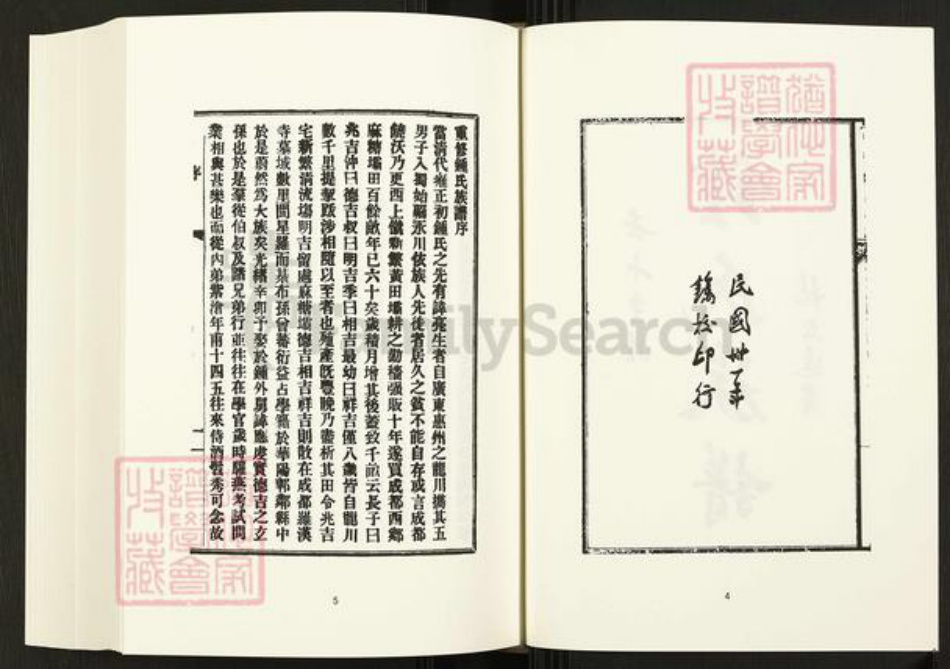 民國卅一年
鎸校印行
4
重修鍾氏族譜序
當清代雍正初鍾氏之先有諱亮生者自廣東惠州之龍川攜其五
男子入蜀始驅永川依族人先徙者居久之貧不能自存或言成都
饒沃乃更西上僦新繁黃田壩耕之勤穡强販十年遂買成都西鄉
麻糖壩田百餘畝年已六十矣歲積月增其後蓋致千畝云長子曰
兆吉仲曰德吉叔曰明吉季曰相吉最幼曰祥吉僅八歲皆自龍川
數千里提挈跋涉相隨以至者也殖產旣豐晚乃盡析其田令兆吉
宅新繁清流塲明吉留處麻糖壩德吉相吉祥吉則散在成都羅漢
寺墓域數里間星羅而棊布孫曾蕃衍益占學籍於華陽郫鄰縣中
於是蔚然爲大族矣光緒辛卯予娶於鍾外舅諱應虔實德吉之玄
孫也於是羣從伯叔及諸兄弟行並往往在學官歲時讌燕考試間
業相與甚樂也而從內弟紫滄年甫十四五往來侍酒醬秀可念故
序
5
猶他家譜學會收藏
猶他家譜學會收藏
FamilySearch